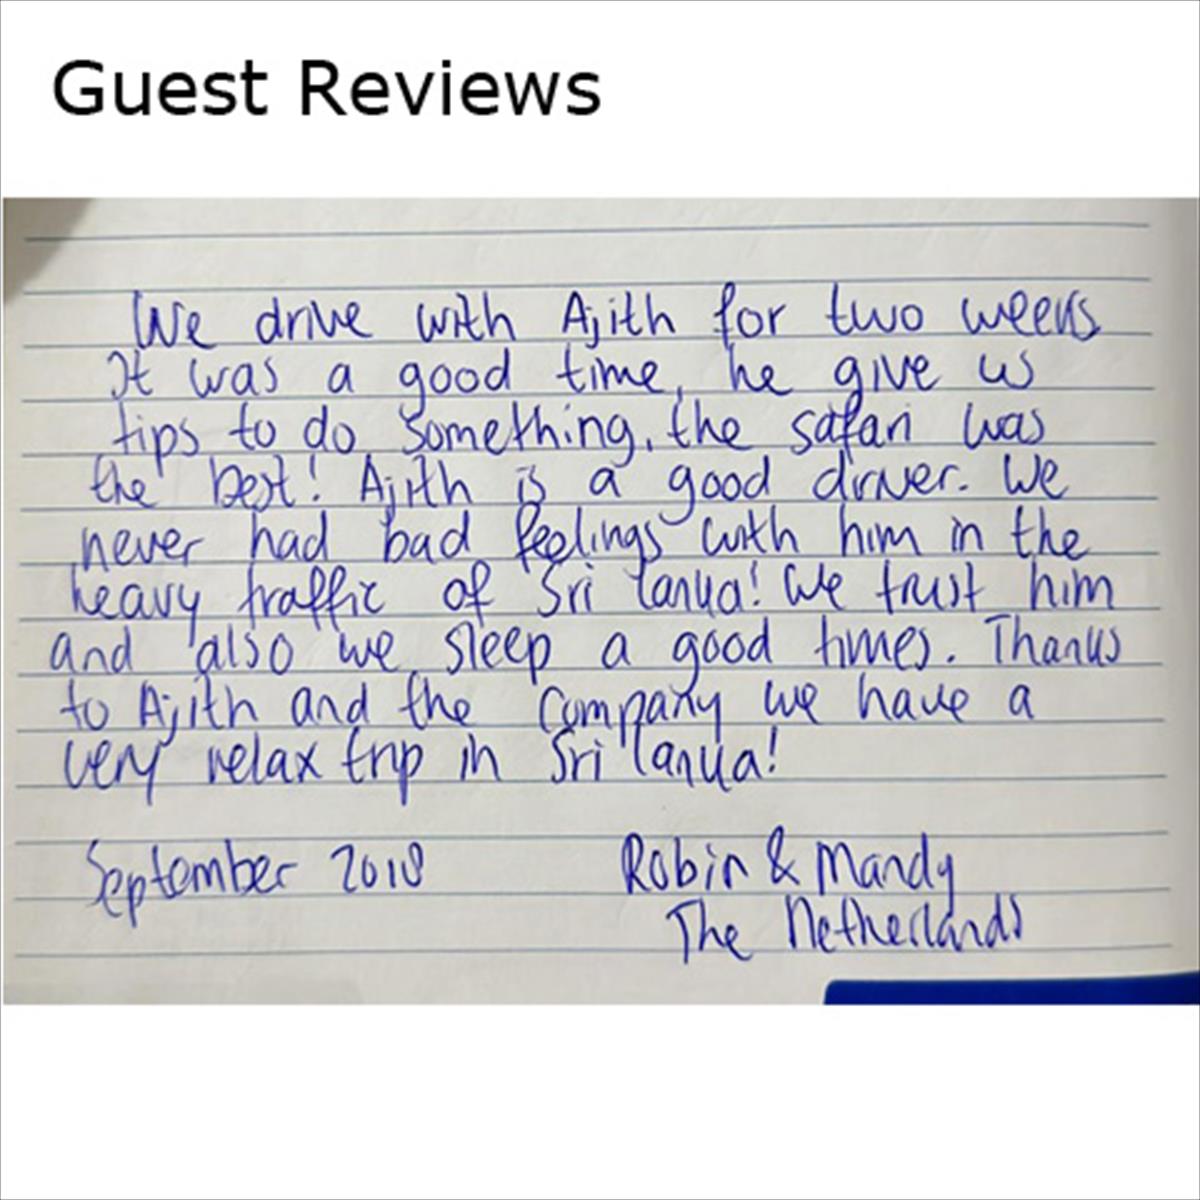 Guest Reviews
We drive with Ajith for two weeks
It was a good time, he give us
tips to do something, the safari was
the best! Ajith is a good driver. We
never had bad feelings with him in the
heavy traffic of Sri lanka! We trust him
and also we sleep a good times. Thanks
to Ajith and the company we have a
very relax trip in Sri lanka!
September 2018
Robin & Mandy
The Netherlands